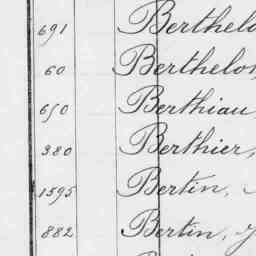 691 Berthelo
60 Berthelon,
650 Berthiau,
380 Berthier,
1595 Bertin,
882 Bertin, J